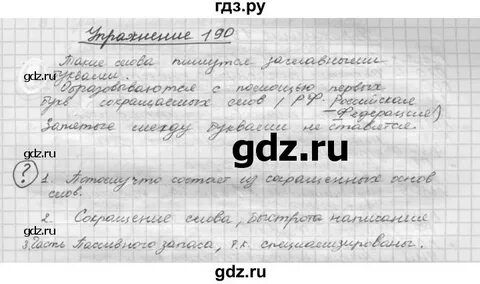 гдз.ру
Упражнение 190
Такие слова пишутся заглавными
буквами.
Образовываются с помощью первых
букв сокращаемых слов (РФ-Российская
Федерация)
Запятые между буквами не ставятся.
gdz.ru
? 1. Потому что состоят из сокращенных основ
слов.
2. Сокращение слова, быстрота написание
3. Часть пассивного запаса, т.к. специализированы.
gdz.ru
gdz.ru
gdz.ru
gdz.ru
gdz.ru